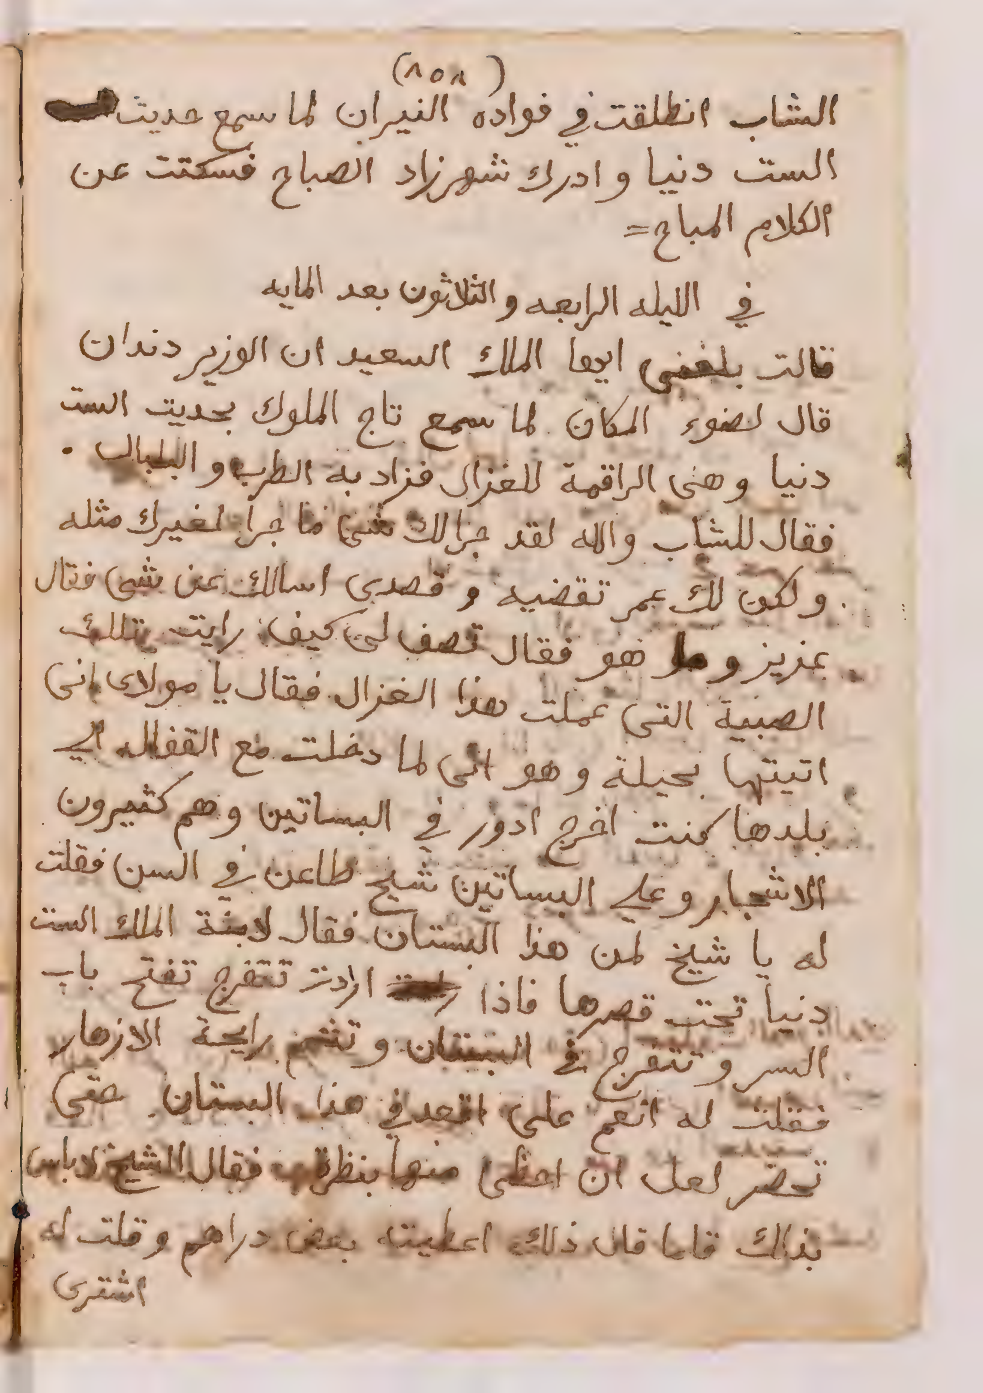 (٨٥٨)
الشاب انطلقت في فواده النيران لما سمع حديث
الست دنيا وادرك شهرزاد الصباح فسكتت عن
الكلام المباح =
في الليله الرابعه والثلاثون بعد المايه
قالت بلغنى ايها الملك السعيد ان الوزير دندان
قال لضوء المكان لما سمع تاج الملوك بحديت الست
دنيا وهى الراقمة للغزال فزاد به الطرب والبلبال .
فقال للشاب والله لقد جرالك شى ما جرا لغيرك مثله
ولكن لك عمر تقضيه وقصدى اسالك عن شى فقال
عزيز وما هو فقال تصف لى كيف رايت تلك
الصبية التى عملت هذا الغزال فقال يا مولاى انى
اتيتها بحيلة وهو انى لما دخلت مع القفل الي
بلدها كنت اخرج ادور في البساتين وهم كثيرون
الاشجار وعلي البساتين شيخ طاعن في السن فقلت
له يا شيخ لمن هذا البستان فقال لابنة الملك الست
دنيا تحت قصرها فاذا ارادت تتفرج تفتح باب
السر وتتفرج في البستان وتشم رايحة الازهار
فقلت له انعم على اقعد في هذا البستان حتى
تحضر لعل ان احظى منها بنظرة فقال الشيخ لا باس
بذالك فلما قال ذلك اعطيته بعض دراهم وقلت له
اشترى